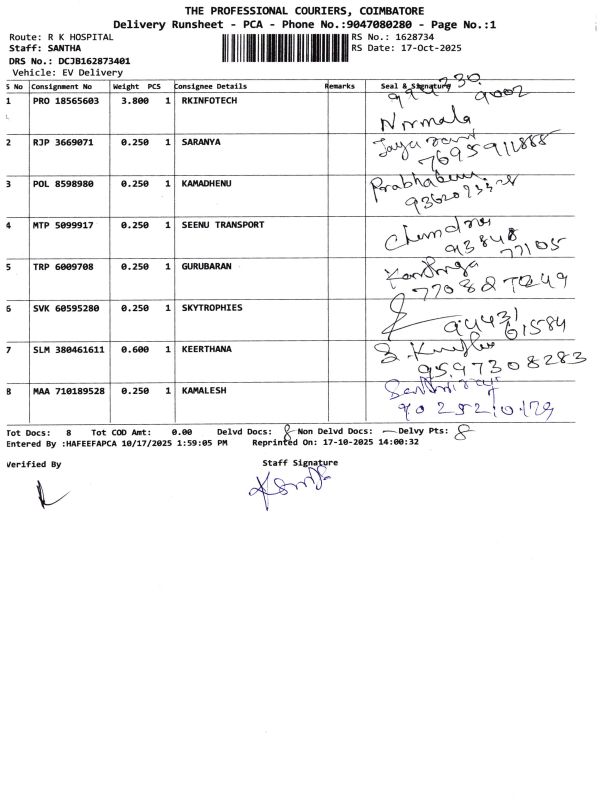 THE PROFESSIONAL COURIERS, COIMBATORE
Delivery Runsheet - PCA - Phone No.:9047080280 - Page No.:1
Route: R K HOSPITAL RS No.: 1628734
Staff: SANTHA RS Date: 17-Oct-2025
DRS No.: DCJB162873401
Vehicle: EV Delivery
S No Consignment No Weight PCS Consignee Details Remarks Seal & Signature
1 PRO 18565603 3.800 1 RKINFOTECH
9002
Nirmala
2 RJP 3669071 0.250 1 SARANYA
3 POL 8598980 0.250 1 KAMADHENU
4 MTP 5099917 0.250 1 SEENU TRANSPORT
93848
77105
5 TRP 6009708 0.250 1 GURUBARAN
6 SVK 60595280 0.250 1 SKYTROPHIES
94431
61584
7 SLM 380461611 0.600 1 KEERTHANA
9597308283
8 MAA 710189528 0.250 1 KAMALESH
Tot Docs: 8 Tot COD Amt: 0.00 Delvd Docs: 8 Non Delvd Docs: — Delvy Pts: 8
Entered By :HAFEEFAPCA 10/17/2025 1:59:05 PM Reprinted On: 17-10-2025 14:00:32
Verified By Staff Signature